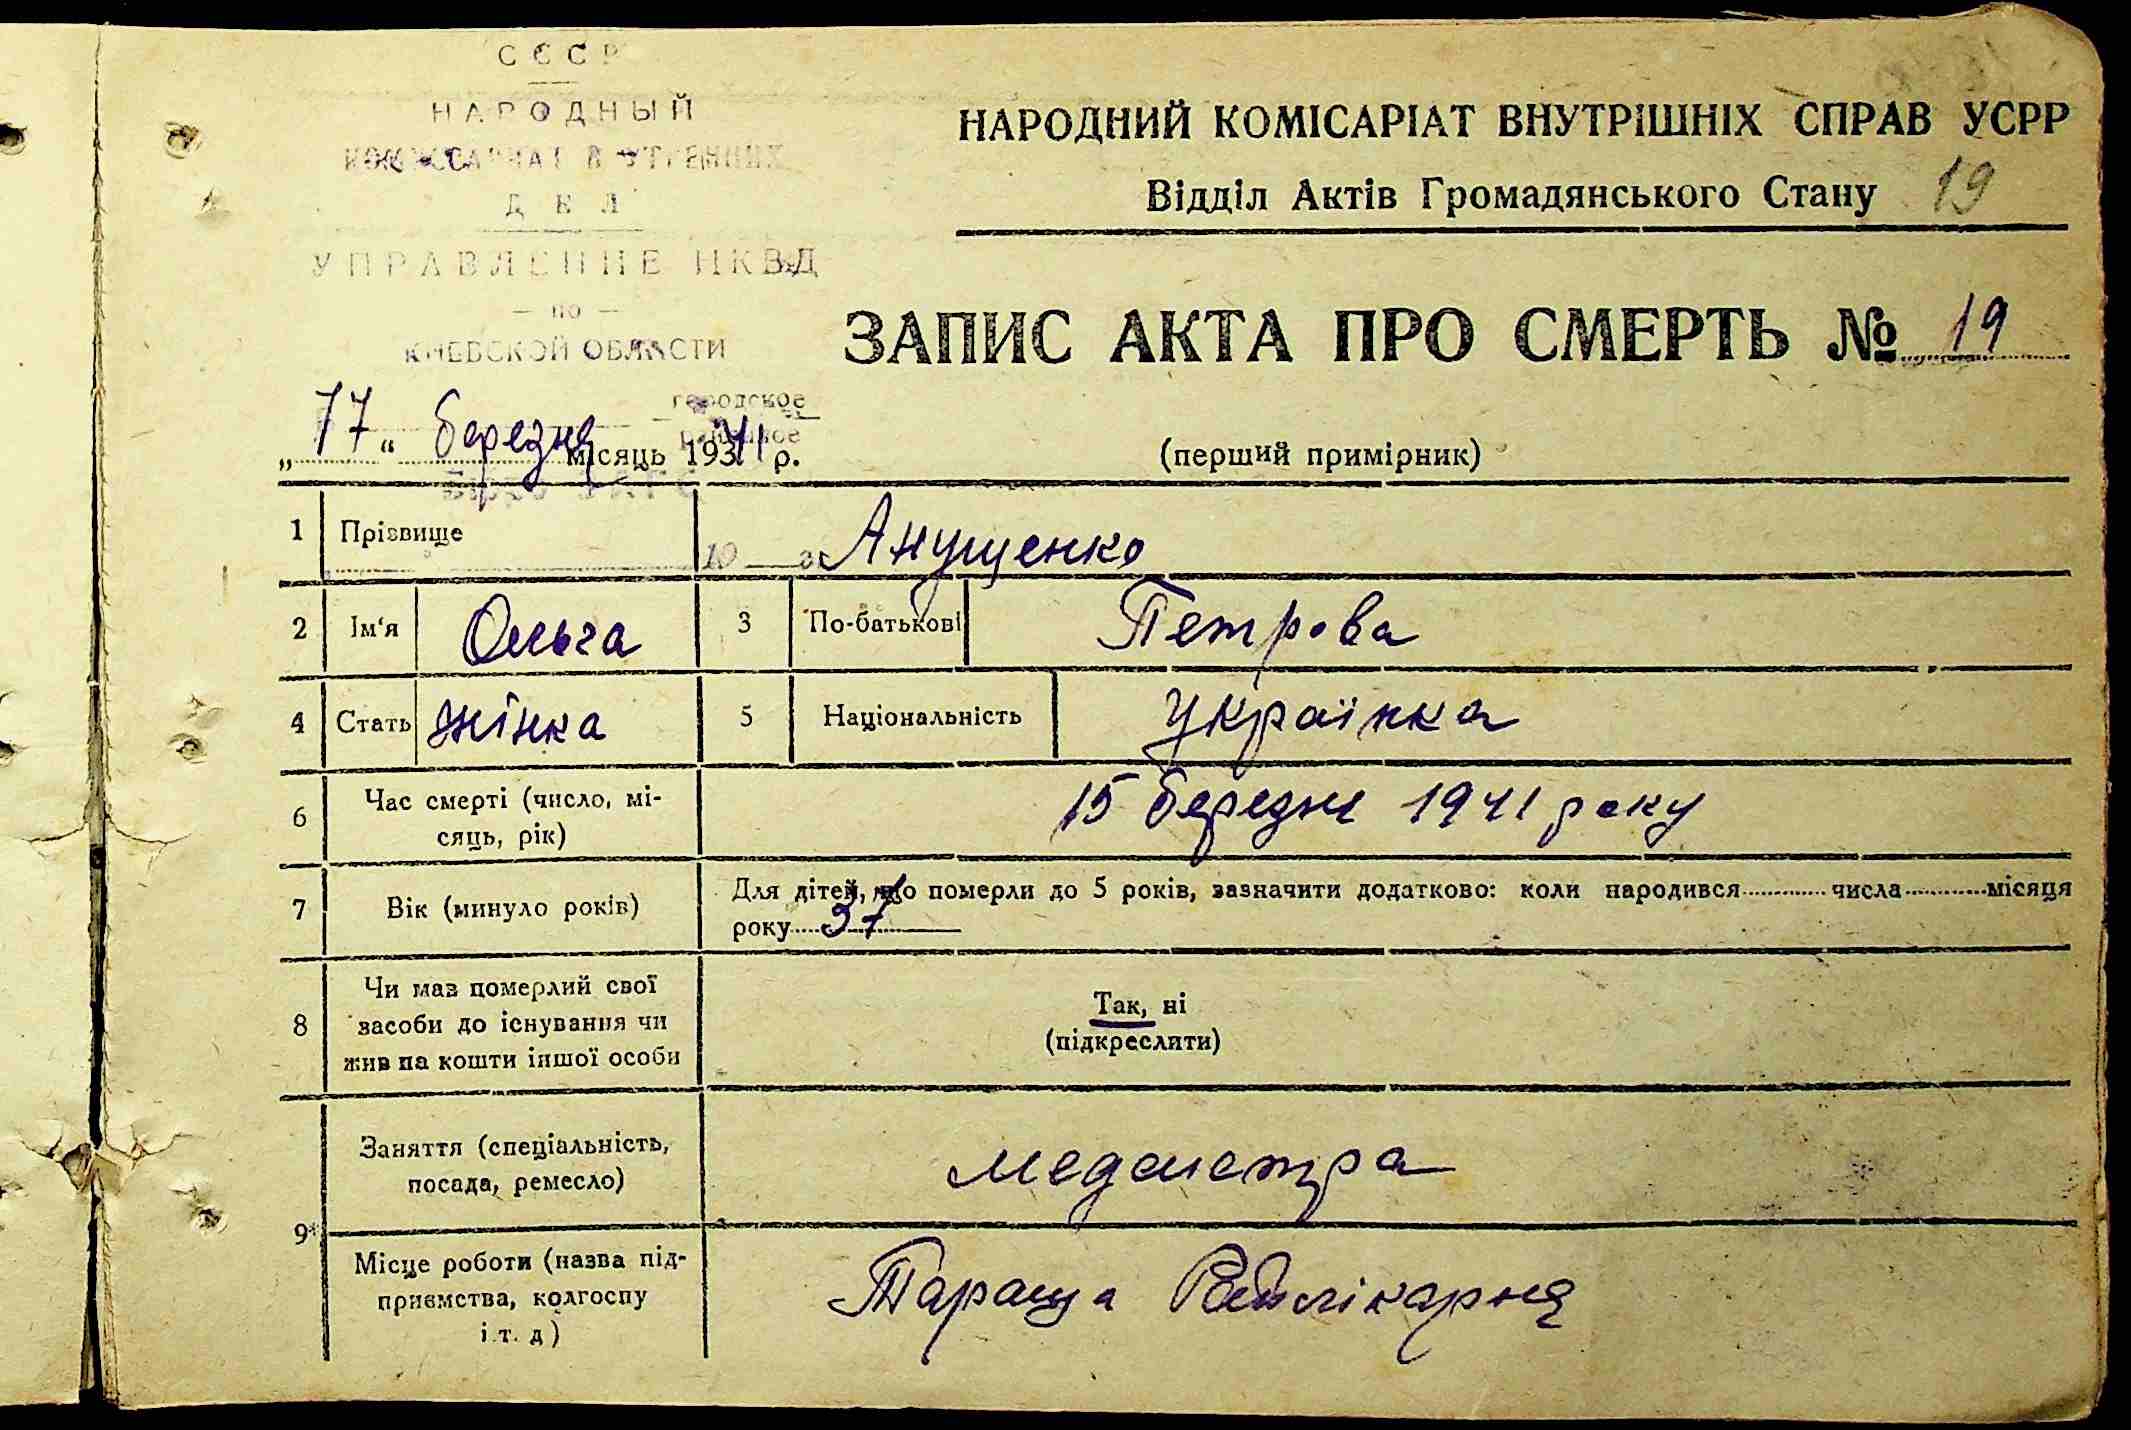 СССР
НАРОДНЫЙ
КОМИССАРИАТ ВНУТРЕННИХ
ДЕЛ
УПРАВЛЕНИЕ НКВД
— по —
КИЕВСКОЙ ОБЛАСТИ
городское
НАРОДНИЙ КОМІСАРІАТ ВНУТРІШНІХ СПРАВ УСРР
Відділ Актів Громадянського Стану 19
ЗАПИС АКТА ПРО СМЕРТЬ № 19
„17“ березня місяць 1941 р.
(перший примірник)
1 Прізвище Анущенко
2 Ім'я Ольга 3 По-батькові Петрова
4 Стать жінка 5 Національність Українка
6 Час смерті (число, мі-
сяць, рік) 15 березня 1941 року
7 Вік (минуло років) Для дітей, що померли до 5 років, зазначити додатково: коли народився числа місяця
року 37
8 Чи має померлий свої
засоби до існування чи
жив на кошти іншої особи
Так, ні
(підкреслити)
9 Заняття (спеціальність,
посада, ремесло) медсистра
Місце роботи (назва під-
приємства, колгоспу
і т. д) Тараща Райлікарня